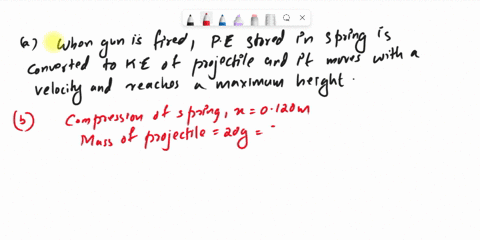 (a) When gun is fired, P.E stored in spring is
converted to KE of projectile and it moves with a
velocity and reaches a maximum height.
(b) Compression of spring, x = 0.120m
Mass of projectile = 20g =